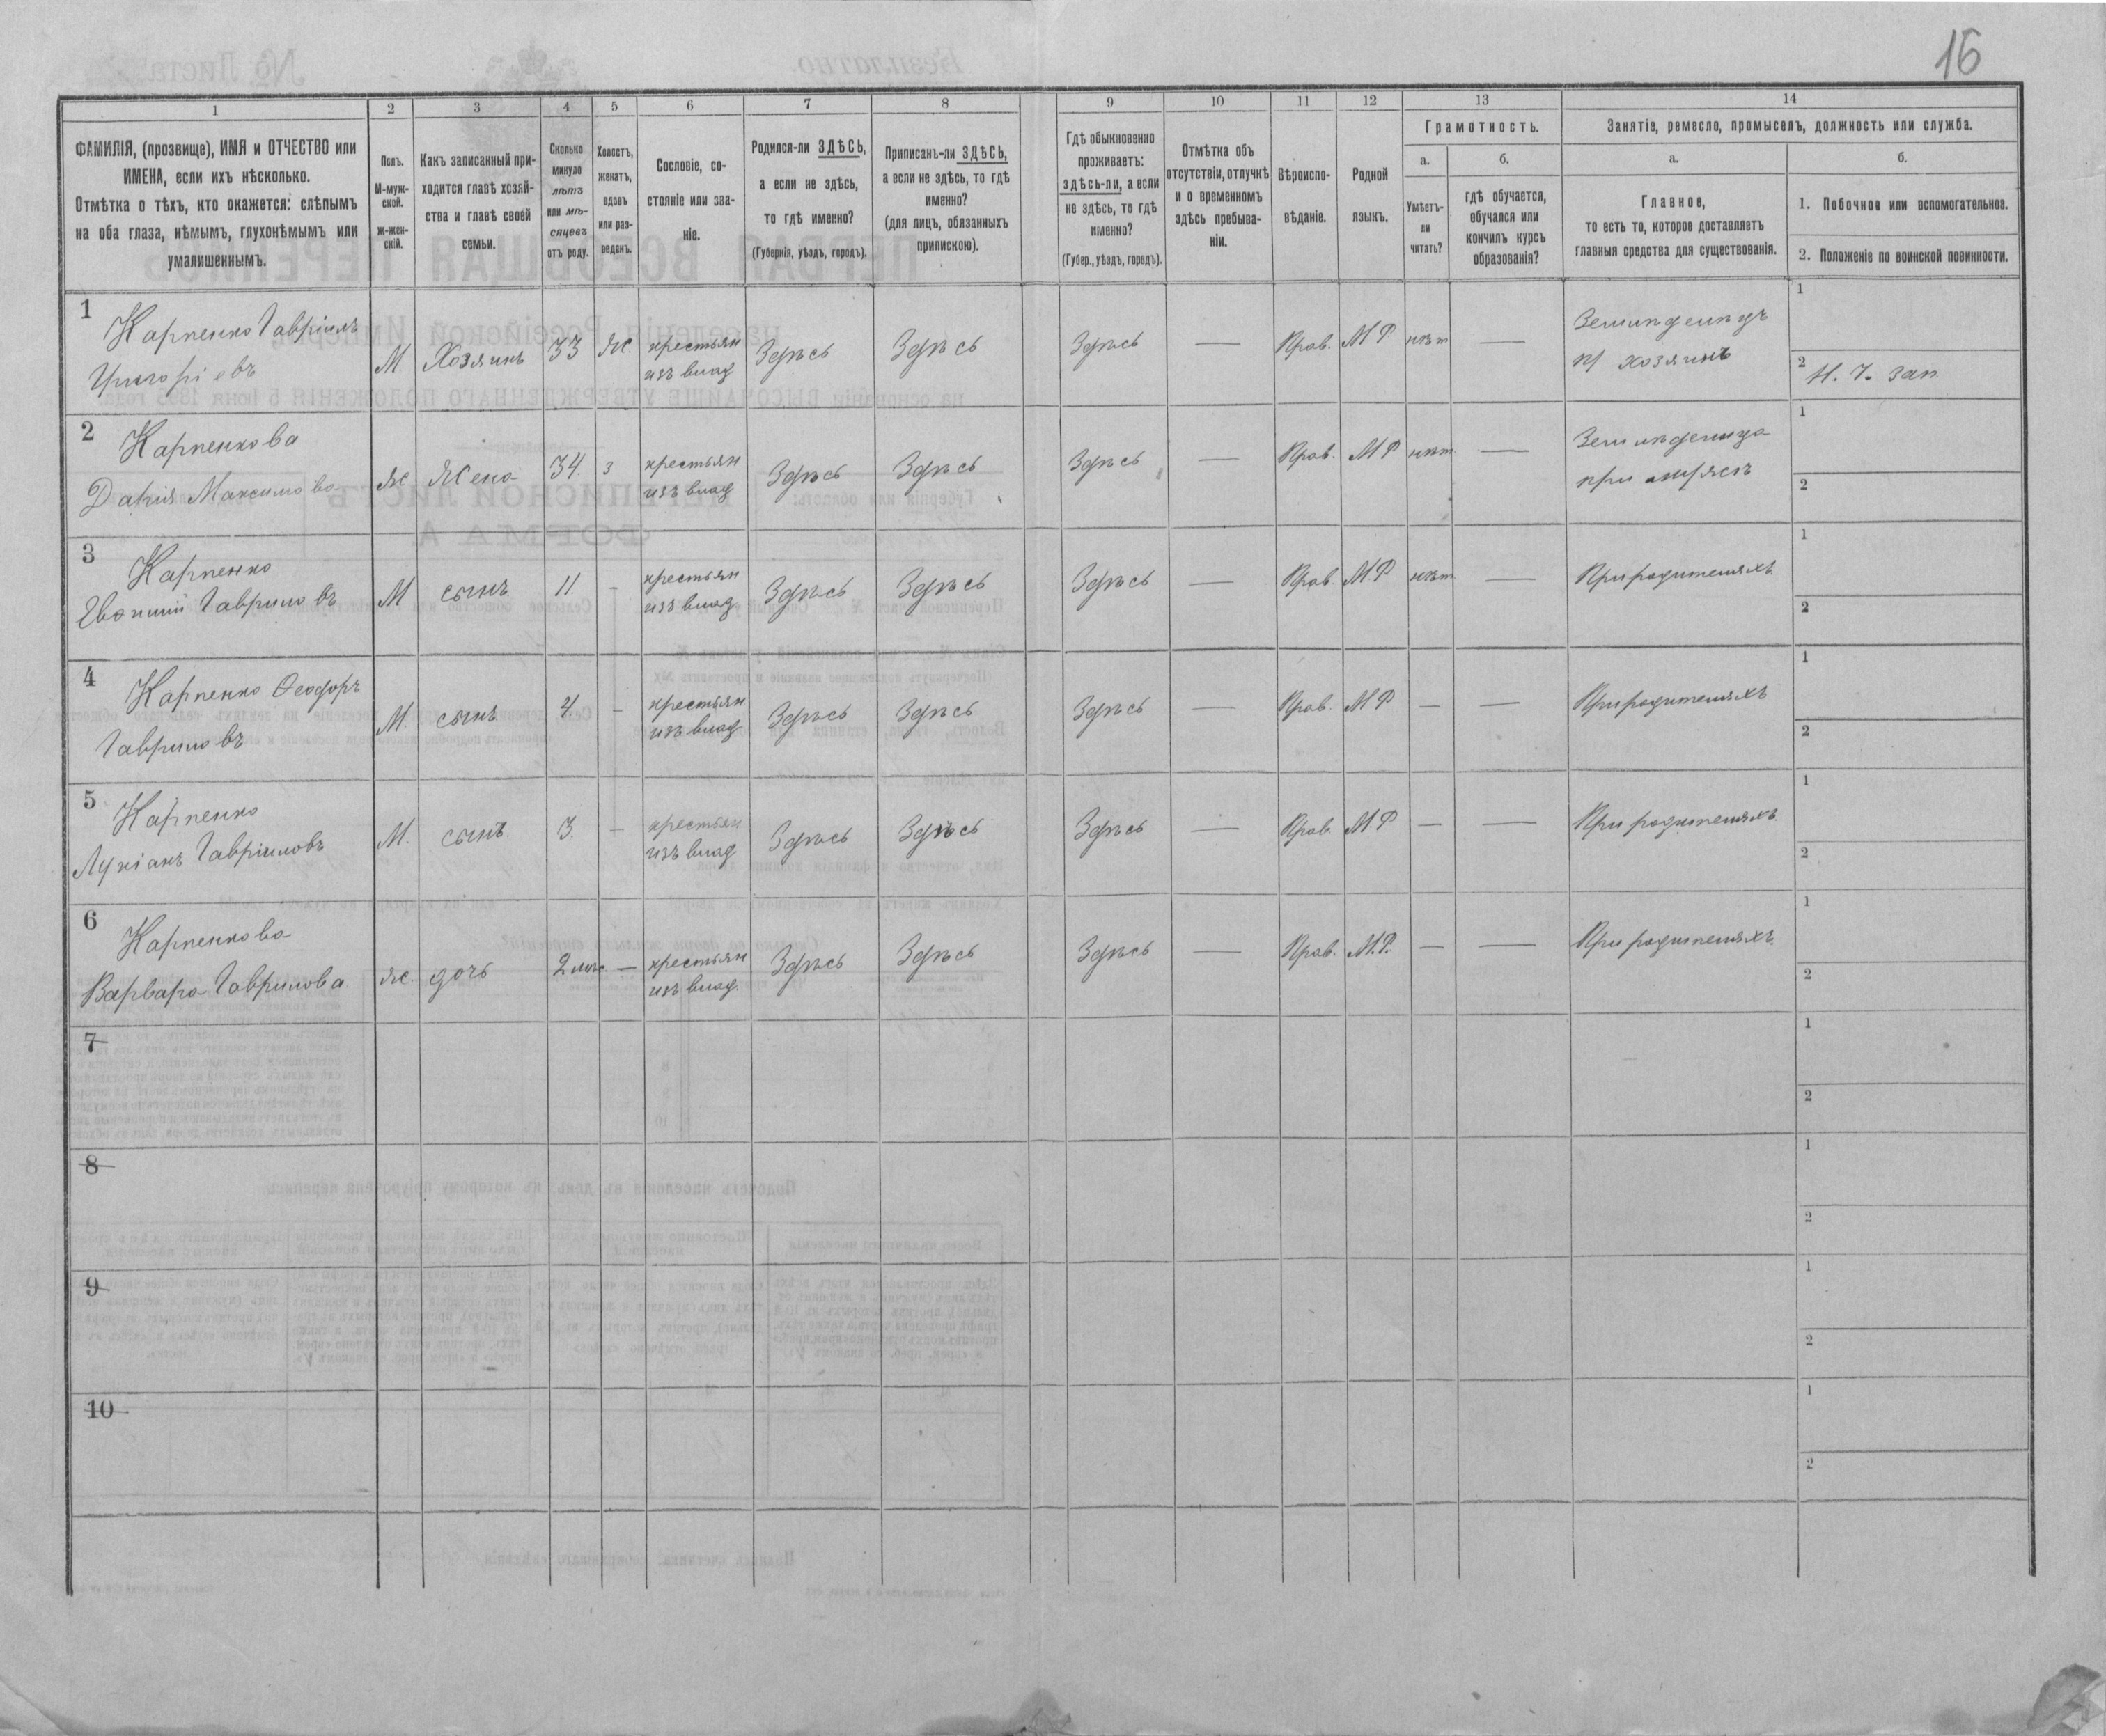 16
1 2 3 4 5 6 7 8 9 10 11 12 13 14
ФАМИЛІЯ, (прозвище), ИМЯ и ОТЧЕСТВО или
ИМЕНА, если ихъ нѣсколько.
Отмѣтка о тѣхъ, кто окажется: слѣпымъ
на оба глаза, нѣмымъ, глухонѣмымъ или
умалишеннымъ.
Полъ.
М-муж-
ской.
Ж-жен-
скій.
Какъ записанный при-
ходится главѣ хозяй-
ства и главѣ своей
семьи.
Сколько
минуло
лѣтъ
или мѣ-
сяцевъ
отъ роду.
Холостъ,
женатъ,
вдовъ
или раз-
веденъ.
Сословіе, со-
стояніе или зва-
ніе.
Родился-ли ЗДѢСЬ,
а если не здѣсь,
то гдѣ именно?
(Губернія, уѣздъ, городъ).
Приписанъ-ли ЗДѢСЬ,
а если не здѣсь, то гдѣ
именно?
(для лицъ, обязанныхъ
припискою).
Гдѣ обыкновенно
проживаетъ:
здѣсь-ли, а если
не здѣсь, то гдѣ
именно?
(Губер., уѣздъ, городъ).
Отмѣтка объ
отсутствіи, отлучкѣ
и о временномъ
здѣсь пребыва-
ніи.
Вѣроиспо-
вѣданіе.
Родной
языкъ.
Грамотность.
а.
Умѣетъ-
ли
читать?
б.
гдѣ обучается,
обучался или
кончилъ курсъ
образованія?
Занятіе, ремесло, промыселъ, должность или служба.
а.
Главное,
то есть то, которое доставляетъ
главныя средства для существованія.
б.
1. Побочное или вспомогательное.
2. Положеніе по воинской повинности.
1 Карпенко Гавріилъ
Григоріевъ М. Хозяинъ 33 Ж. крестьян
изъ влад Здѣсь Здѣсь Здѣсь — Прав. М Р нѣт — Земледѣлецъ
хозяинъ 1
2 зап
2 Карпенкова
Дарія Максимова Ж Жена 34. З крестьян
изъ влад Здѣсь Здѣсь Здѣсь — Прав. М Р нѣт. — Земледѣлица
при 1
2
3 Карпенко
Гавриловъ М сынъ 11. — крестьян
изъ влад Здѣсь Здѣсь Здѣсь — Прав. М.Р нѣт — При родителяхъ. 1
2
4 Карпенко Ѳеодоръ
Гавриловъ М. сынъ 4 — крестьян
изъ влад Здѣсь Здѣсь Здѣсь — Прав. М Р — — При родителяхъ 1
2
5 Карпенко
Лукіанъ Гавріиловъ М. сынъ 3. — крестьян
изъ влад Здѣсь Здѣсь Здѣсь — Прав М.Р — — При родителяхъ. 1
2
6 Карпенкова
Варвара Гаврилова Ж. дочь 2 мѣс — крестьян
изъ влад. Здѣсь Здѣсь Здѣсь — Прав. М.Р. — — При родителяхъ. 1
2
7 1
2
8 1
2
9 1
2
10 1
2